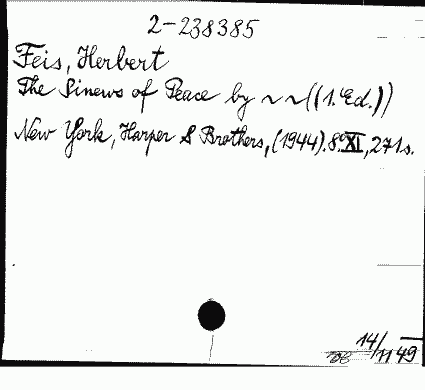 2-238385
Feis, Herbert
The Sinews of Peace by ~ ~ ((1. Ed.))
New York, Harper & Brothers, (1944). 8° XI, 271 s.
14/11 49